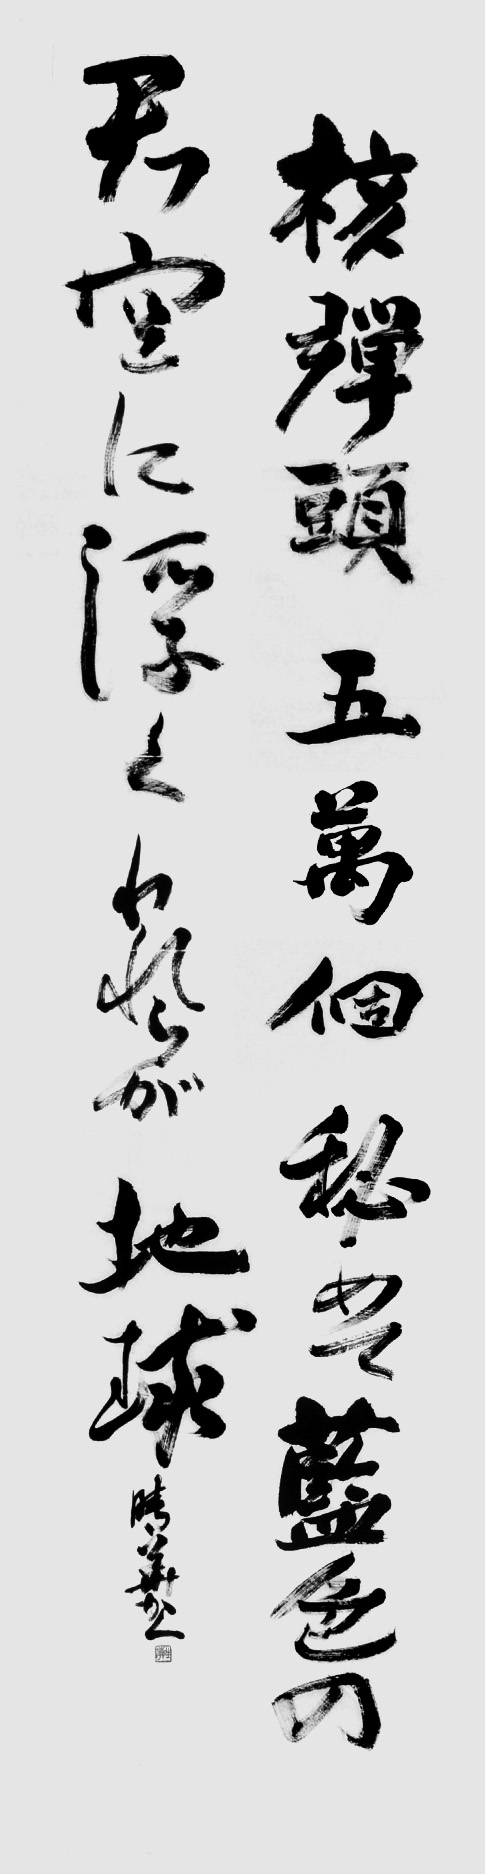 核彈頭 五萬個 秘めて藍色の
天空に浮くわれらが 地球
晴華